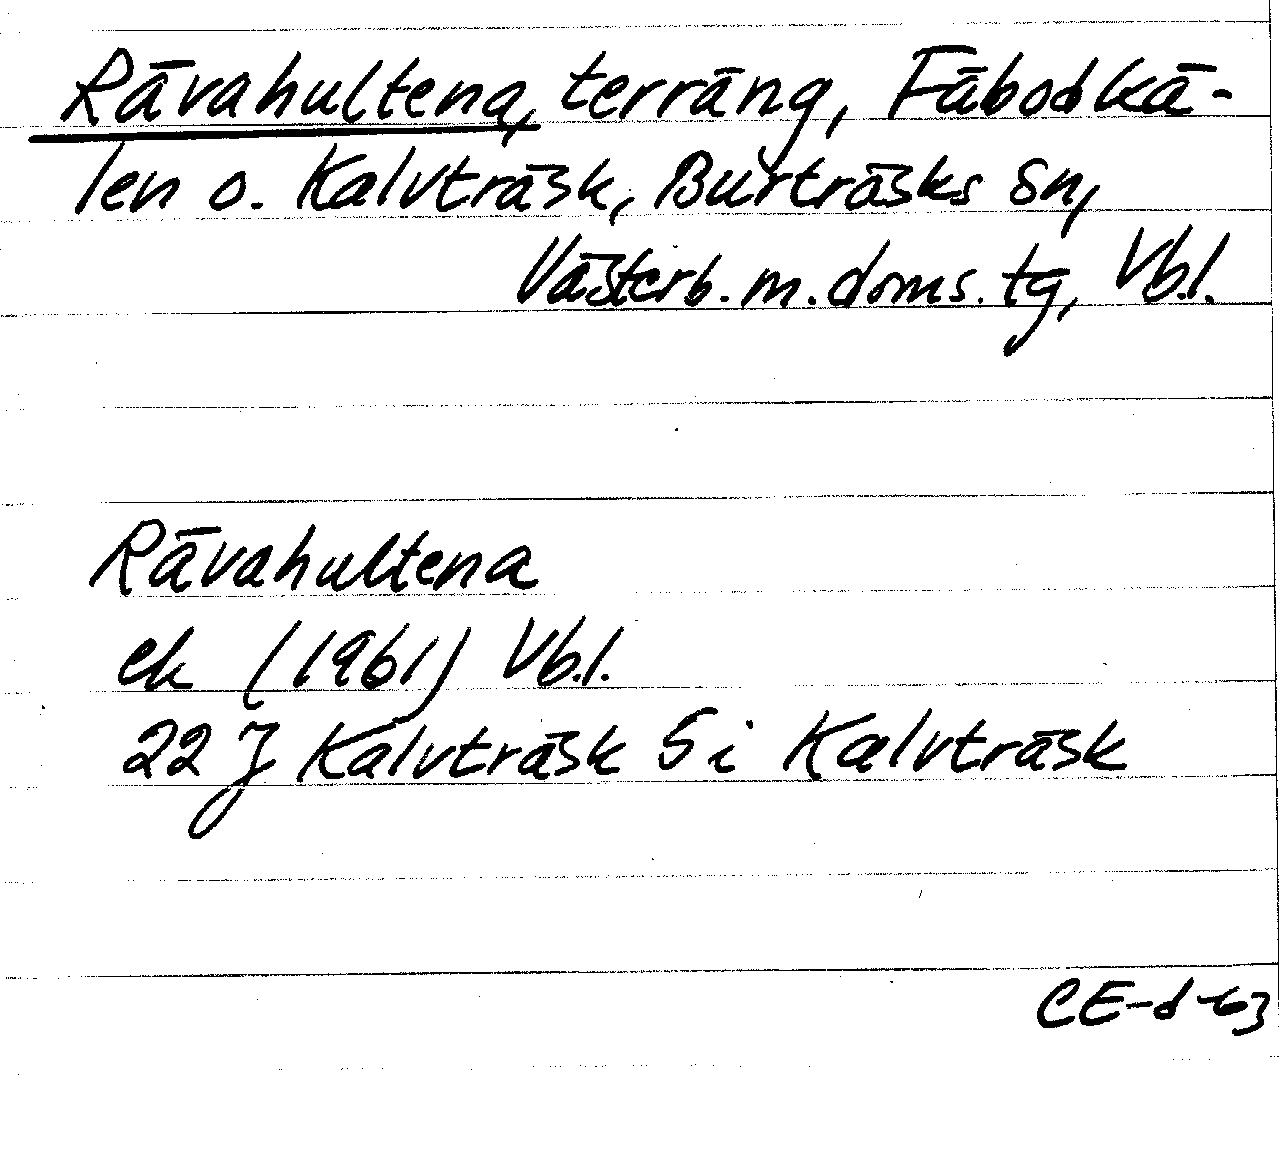 Rävahultena, terräng, Fäbodkä-
len o. Kalvträsk, Burträsks sn,
Västerb. m. doms. tg, Vb.l.
Rävahultena
ek (1961) Vb.l.
22 J Kalvträsk S i Kalvträsk
CE-d-63